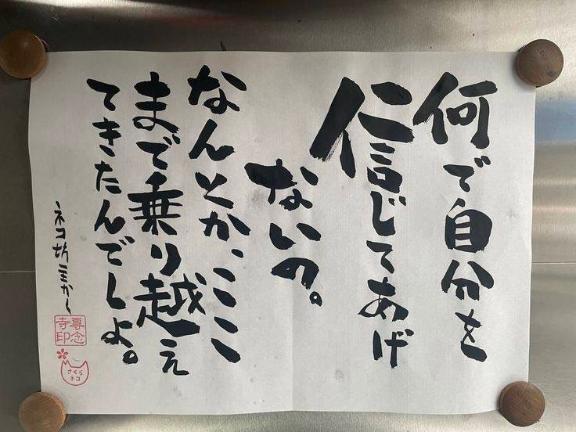 何で自分を
信じてあげ
ないの。
なんとか、ここ
まで乗り越え
てきたんでしょ。
ネコ坊主か〜
専念
寺印
さくら
ネコ